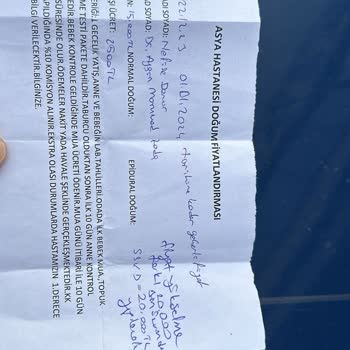 ASYA HASTANESİ DOĞUM FİYATLANDIRMASI
22.12.23 01.01.2024 tarihine kadar geçerli
AD SOYADI: Nefise Demir
AD SOYAD: Dr.
15.000 TL NORMAL DOĞUM: EPİDURAL DOĞUM:
ŞI ÜCRET: 2500 TL
1 GECELİK YATIŞ, ANNE VE BEBEĞİN LAB. TAHLİLLERİ, ODADA İLK BEBEK MUA., TOPUK
ME TESTİ PAKETE DAHİLDİR. TABURCU OLDUKTAN SONRA İLK 10 GÜN ANNE KONTROL
EDİR. BEBEK KONTROLE GELDİĞİNDE MUA ÜCRETİ ÖDENİR. MUA GÜNÜ İTİBARI İLE 10 GÜN
SÜRESİNDE OLUR. ÖDEMELER NAKİT YADA HAVALE ŞEKLİNDE GERÇEKLEŞMEKTEDİR. KK
PILDIĞINDA %10 KOMİSYON ALINIR. EKSTRA OLASI DURUMLARDA HASTAMIZIN 1. DERECE
BİLGİ VERİLECEKTİR. BİLGİNİZE.
fiyat yükselme
farkı 20.000
SSVD = 20.000 TL